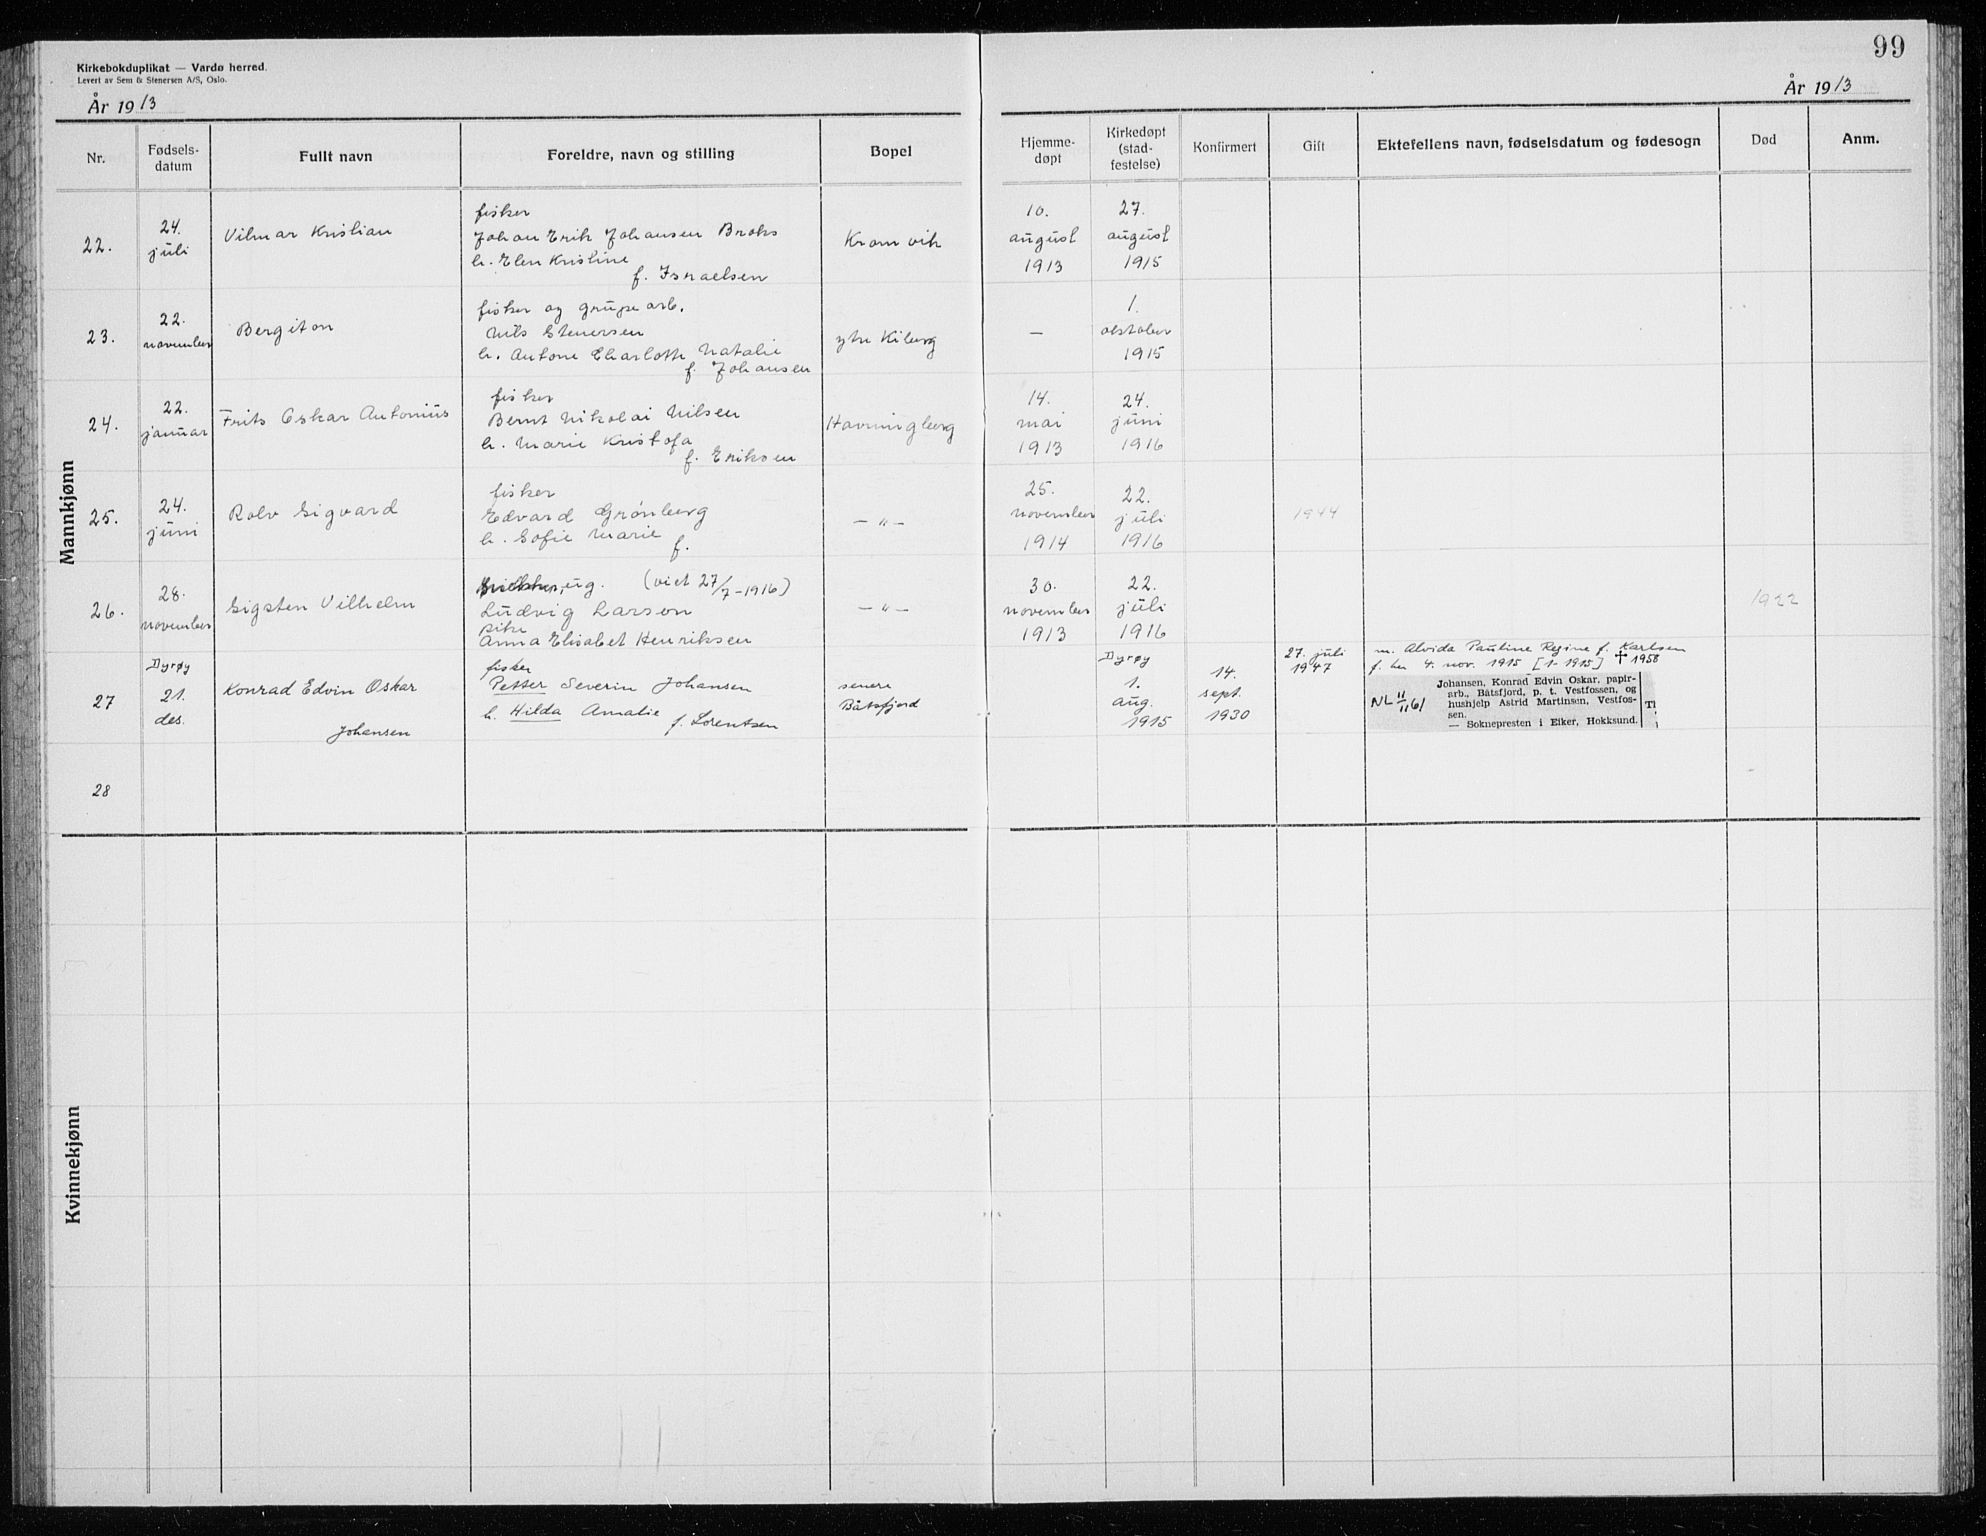 99
Kirkebokduplikat — Vardø herred.
Levert av Sem & Stenersen A/S, Oslo.
År 1913
År 1913
Nr.
Fødsels-
datum
Fullt navn
Foreldre, navn og stilling
Bopel
Hjemme-
døpt
Kirkedøpt
(stad-
festelse)
Konfirmert
Gift
Ektefellens navn, fødselsdatum og fødesogn
Død
Anm.
Mannkjønn
22.
24.
juli
Vilmar Kristian
fisker
Johan Erik Johansen Broks
h. Elen Kristine
f. Israelsen
Kramvik
10.
august
1913
27.
august
1915
23.
22.
november
Bergiton
fisker og grupearb.
Nils Stenersen
h. Antone Charlotte Natalie
f. Johansen
ytre Kiberg
—
1.
oktober
1915
24.
22.
januar
Frits Oskar Antonius
fisker
Bernt Nikolai Nilsen
h. Marie Kristofa
f. Eriksen
Havningberg
14.
mai
1913
24.
juni
1916
25.
24.
juni
Rolv Sigvard
fisker
Edvard Grønberg
h. Sofie Marie
f.
— " —
25.
november
1914
22.
juli
1916
1944
26.
28.
november
Sigsten Vilhelm
ug. (viet 27/7-1916)
Ludvig Larson
pike
Anna Elisabet Henriksen
— " —
30.
november
1913
22.
juli
1916
1922
27
Dyrøy
21.
des.
Konrad Edvin Oskar
Johansen
fisker
Petter Severin Johansen
h. Hilda Amalie
f. Lorentsen
senere
Båtsfjord
Dyrøy
1.
aug.
1915
14.
sept.
1930
27. juli
1947
m. Alvida Pauline Regine f. Karlsen
f. her 4. nov. 1915 [1-1915] † 1958
NL 11/11 61
Johansen, Konrad Edvin Oskar, papir-
arb., Båtsfjord, p. t. Vestfossen, og
hushjelp Astrid Martinsen, Vestfos-
sen.
— Soknepresten i Eiker, Hokksund.
28
Kvinnekjønn